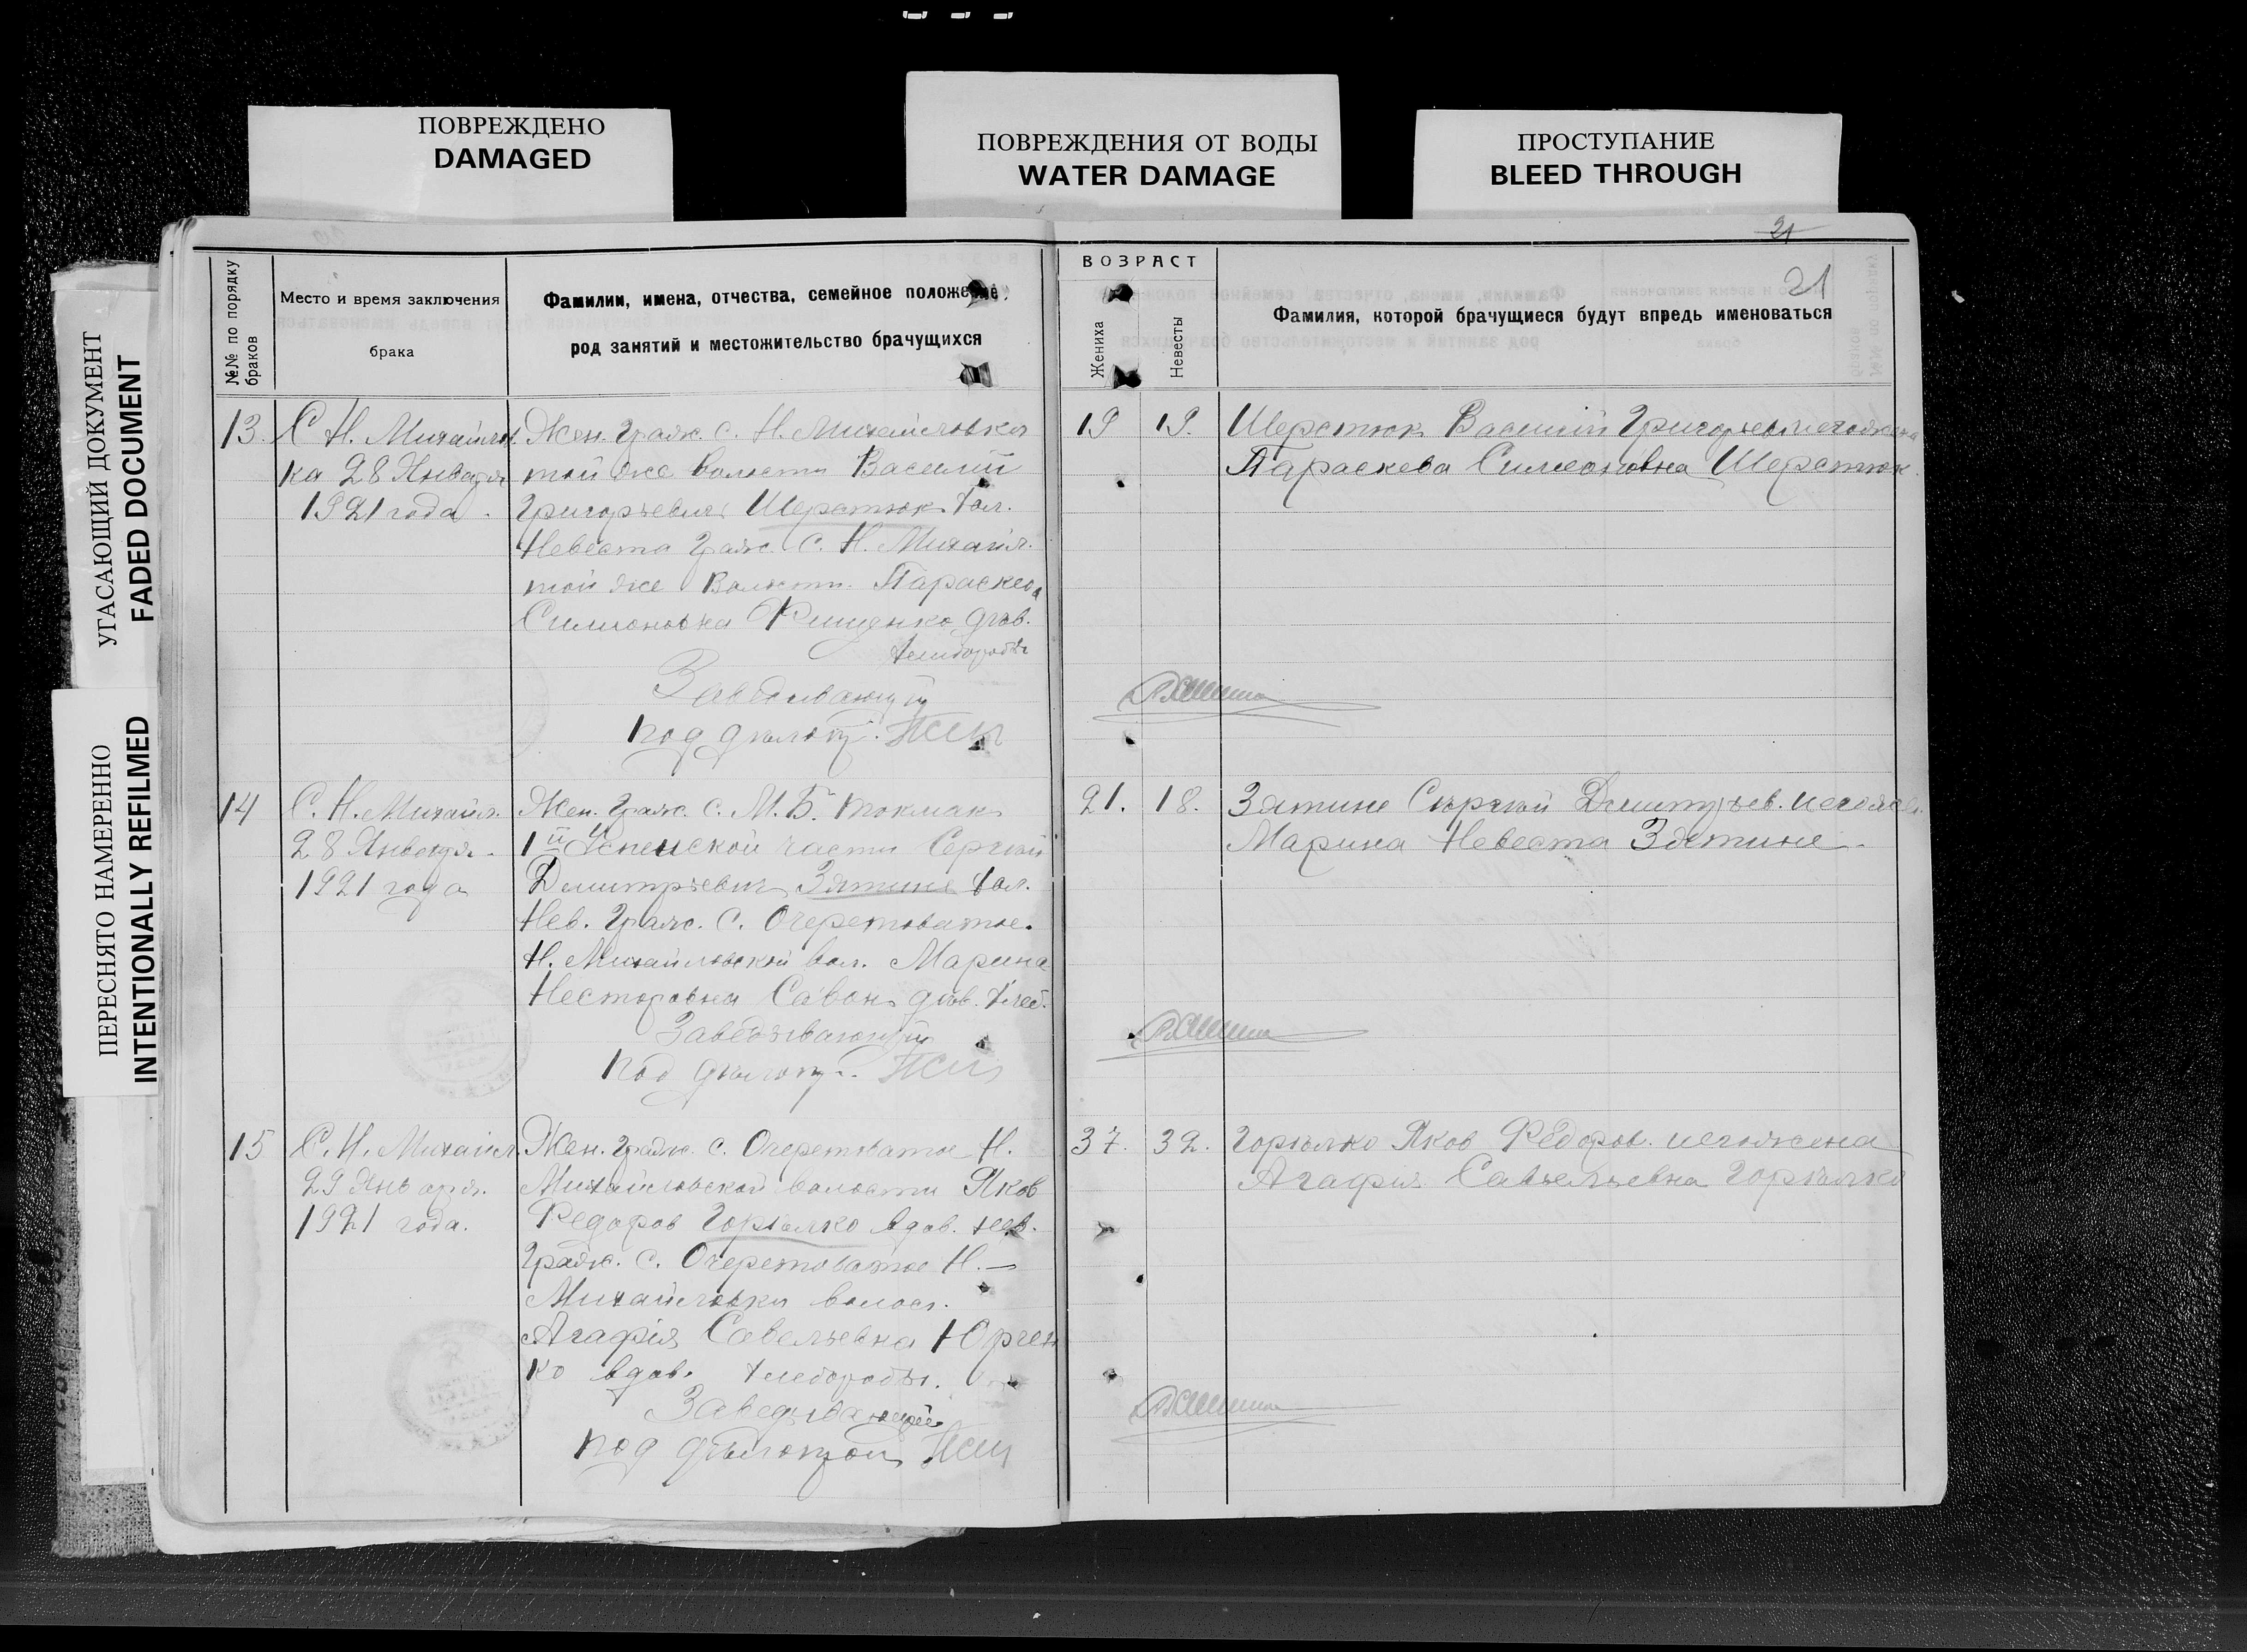 ПОВРЕЖДЕНО
DAMAGED
ПОВРЕЖДЕНИЯ ОТ ВОДЫ
WATER DAMAGE
ПРОСТУПАНИЕ
BLEED THROUGH
УГАСАЮЩИЙ ДОКУМЕНТ
FADED DOCUMENT
ПЕРЕСНЯТО НАМЕРЕННО
INTENTIONALLY REFILMED
№№ по порядку браков
Место и время заключения
брака
Фамилии, имена, отчества, семейное положение,
род занятий и местожительство брачущихся
21
21
ВОЗРАСТ
Жениха
Невесты
Фамилия, которой брачущиеся будут впредь именоваться
13.
С Н. Михайлов
ка 28 Января
1921 года
Жен. Граж. с. Н. Михайловка
той же волости Василий
Григорьевич Шерстюк хол.
Невеста Граж. С. Н. Михайл.
той же Волости Параскева
Симионовна дев.
хлебороды
Заведывающий
под
19 19.
Шерстюк Василий Григорьевич
Параскева Симеоновна Шерстюк
14
С. Н. Михайл.
28 Января
1921 года
Жен. Граж. с. М. Б. Токмак
1й Успенской части Сергей
Дмитрьевич Зятине хол.
Нев. Граж. С. Очеретоватое.
Н. Михайловской вол. Марина
Несторовна Савон дев. хлеб.
Заведывающий
под
21. 18.
Зятине Сергей Дмитрьев.
Марина Невеста Зятине
15
С. Н. Михайл.
29 Января.
1921 года.
Жен. Граж. с. Очеретоватое Н.
Михайловской волости Яков
Федоров Горелко вдов. нев.
Граж. с. Очеретоватое Н.—
Михайловки волос.
Агафія Савельевна Юрчен
ко вдов. хлебороды.
Заведывающий
под
37. 32.
Горелко Яков Федоров. его жена
Агафия Савельевна Горелко